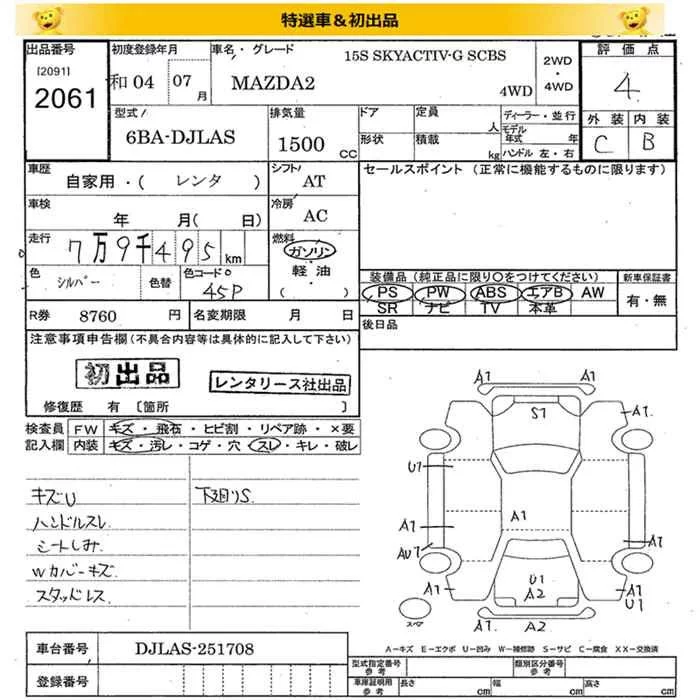 特選車＆初出品
出品番号
[2091]
2061
初度登録年月
和04 07月
車名・グレード
15S SKYACTIV-G SCBS
MAZDA2
4WD
2WD
・
4WD
評価点
4
外装 内装
C B
型式
6BA-DJLAS
排気量
1500 CC
ドア
形状
定員 人
積載 kg
ディーラー・並行
モデル年式 年
ハンドル 左・右
車歴
自家用・( レンタ )
シフト
AT
セールスポイント (正常に機能するものに限ります)
車検
年 月( 日)
冷房
AC
走行
7万9千495km
燃料
ガソリン
軽・油
・( )
色
シルバー
色替
色コード
45P
装備品 (純正品に限り○をつけてください)
PS PW ABS エアB AW
SR ナビ TV 本革
新車保証書
有・無
R券 8760 円
名変期限 月 日
後日品
注意事項申告欄 (不具合内容等は具体的に記入して下さい)
初出品
レンタリース社出品
修復歴 有 [箇所 ]
検査員 FW キズ・飛石・ヒビ割・リペア跡・×要
記入欄 内装 キズ・汚レ・コゲ・穴・スレ・キレ・破レ
キズU
ハンドルスレ
シートしみ
Wカバーキズ
スタッドレス
下廻りS
A1 A1
S1
A1 A1
U1
A1
A1 A1
AU1
U1
A2
A1 A1
U1
A2
スペア
A－キズ E－エクボ U－凹み W－補修跡 S－サビ C－腐食 XX－交換済
車台番号 DJLAS-251708
登録番号
型式指定番号
参考
類別区分番号
参考
車庫証明用
参考
長さ cm 幅 cm 高さ cm